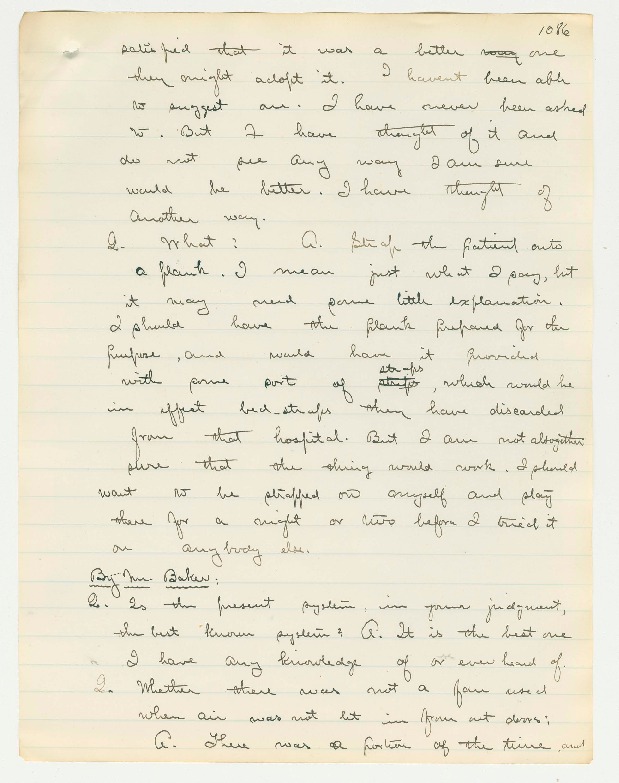 1086
satisfied that it was a better way one
they might adopt it. I havent been able
to suggest one. I have never been asked
to. But I have thought of it and
do not see any way I am sure
would be better. I have thought of
another way.
Q. What? A. Strap the patient onto
a plank. I mean just what I say, but
it may need some little explanation.
I should have the plank prepared for the
purpose, and would have it provided
straps
with some sort of straps, which would be
in effect bed-straps they have discarded
from that hospital. But I am not altogether
sure that the thing would work. I should
want to be strapped on myself and stay
there for a night or two before I tried it
on anybody else.
By Mr. Baker:
Q. Is the present system, in your judgment,
the best known system? A. It is the best one
I have any knowledge of or ever heard of.
Q. Whether there was not a fan used
when air was not let in from out doors?
A. There was a portion of the time, and